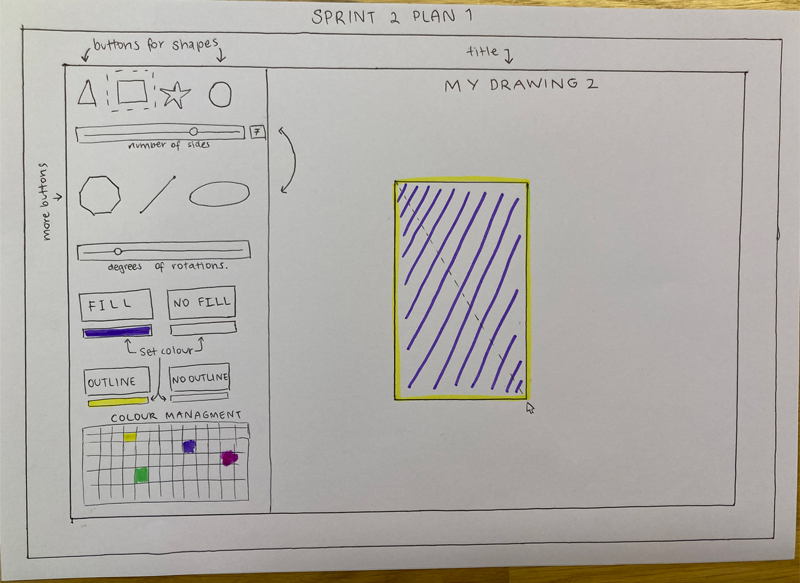 SPRINT 2 PLAN 1
buttons for shapes
title
MY DRAWING 2
7
number of sides
more buttons
degrees of rotations.
FILL
NO FILL
set colour
OUTLINE
NO OUTLINE
COLOUR MANAGMENT